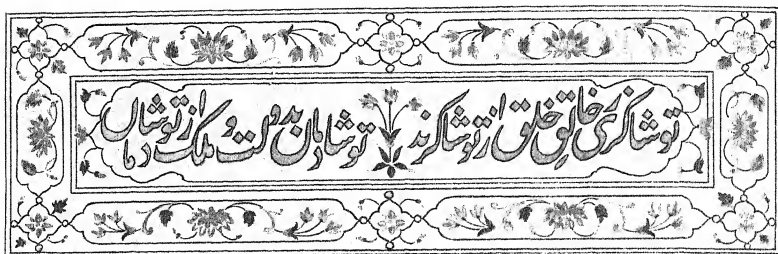 تو شاکری ز خالق و خلق از تو شاکرند تو شادمان بدولت و ملک از تو شادمان